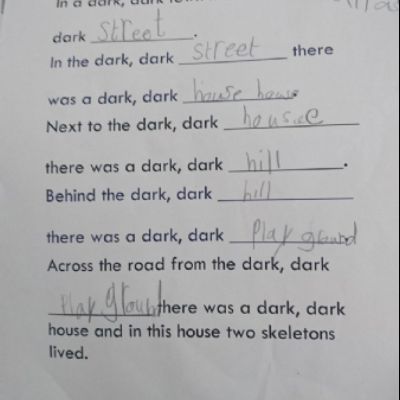 In a dark, dark
dark street.
In the dark, dark street there
was a dark, dark house house
Next to the dark, dark house
there was a dark, dark hill.
Behind the dark, dark hill
there was a dark, dark Play ground
Across the road from the dark, dark
Play ground there was a dark, dark
house and in this house two skeletons
lived.